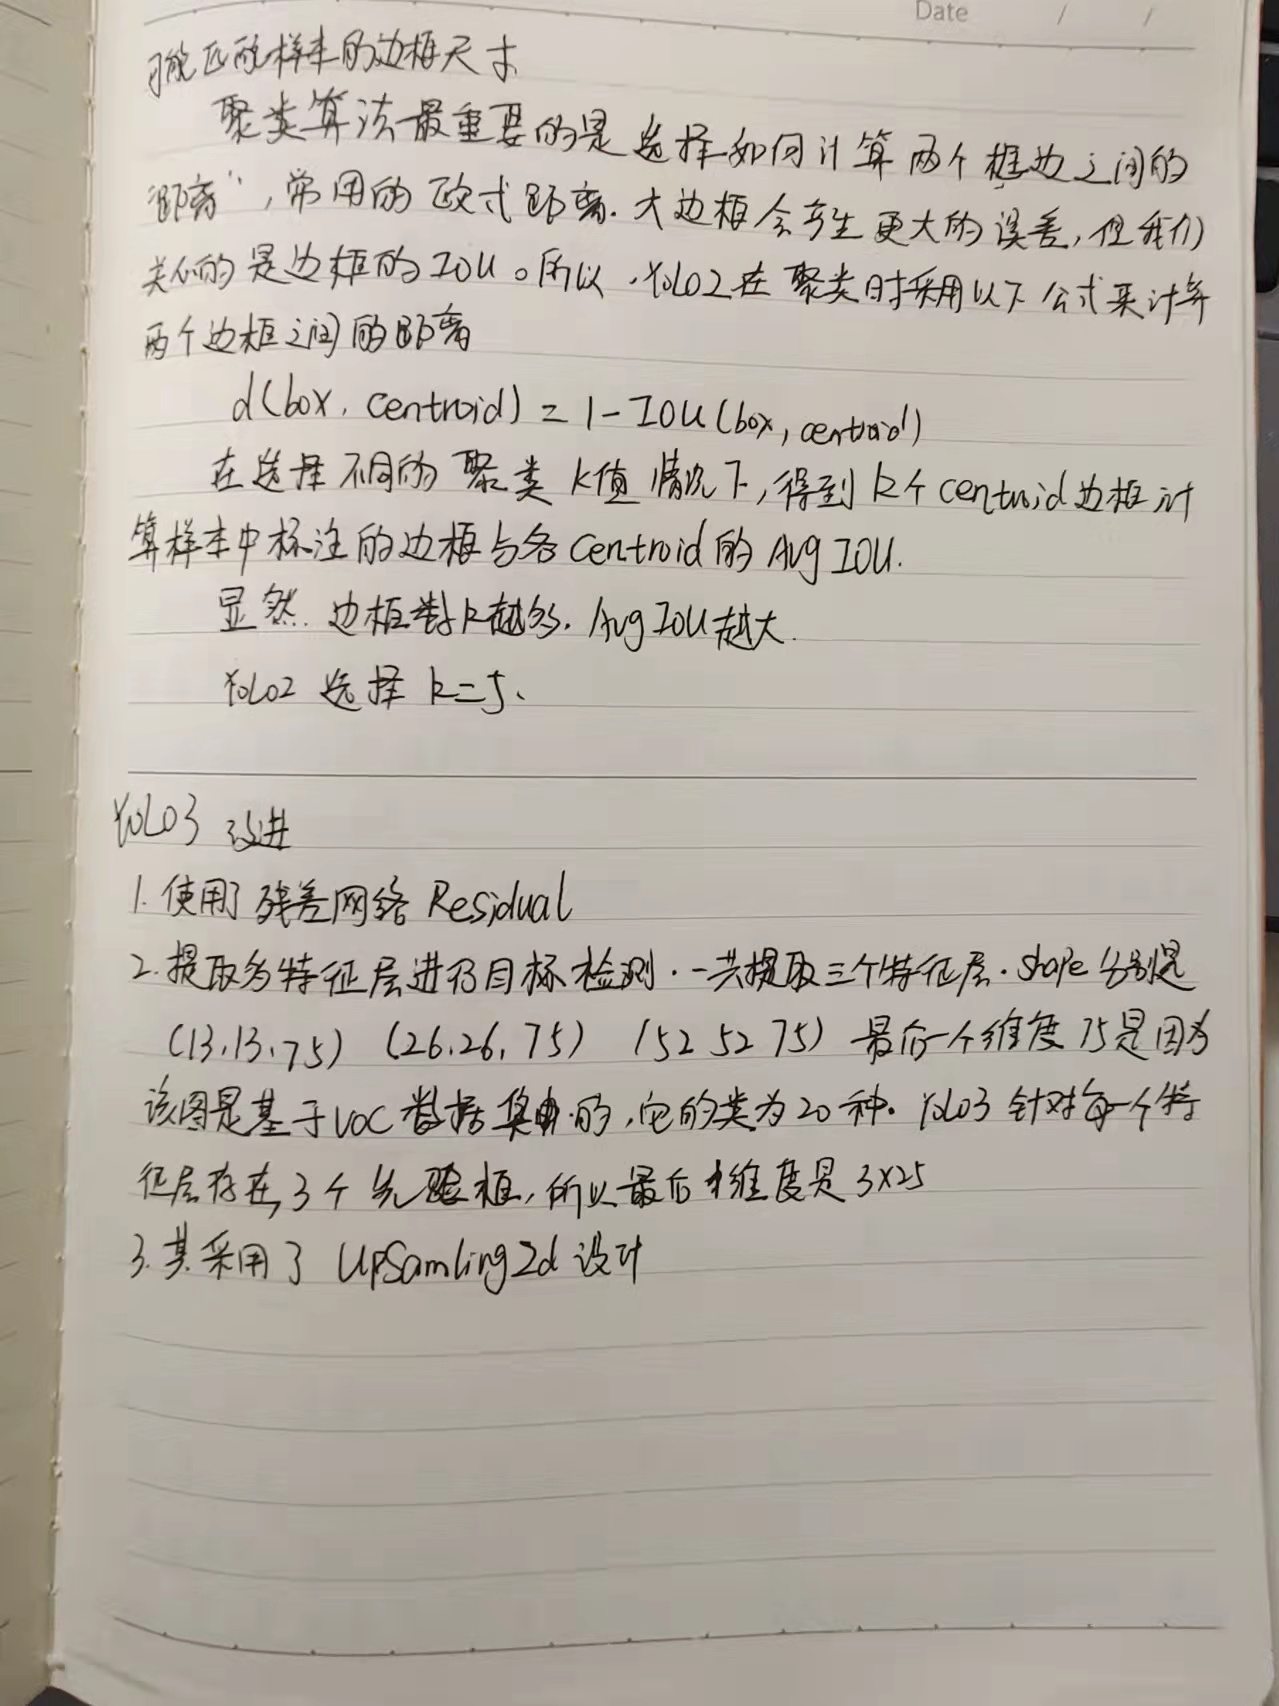 Date / /
可能匹配样本的边框尺寸
聚类算法最重要的是选择如何计算两个框边之间的
"距离",常用的欧式距离.大边框会产生更大的误差,但我们
关心的是边框的IOU。所以.YOLO2在聚类时采用以下公式来计算
两个边框之间的距离
d(box, centroid) = 1-IOU(box, centroid)
在选择不同的聚类k值情况下,得到k个centroid边框计
算样本中标注的边框与各Centroid的Avg IOU.
显然.边框数k越多.Avg IOU越大.
YOLO2选择k=5、
YOLO3 改进
1.使用了残差网络 Residual
2.提取多特征层进行目标检测.一共提取三个特征层.shape分别是
(13,13,75) (26,26,75) (52 52 75) 最后一个维度75是因为
该图是基于VOC数据集的,它的类为20种.YOLO3针对每一个特
征层存在3个先验框,所以最后维度是3×25
3.其采用了UpSamling2d设计